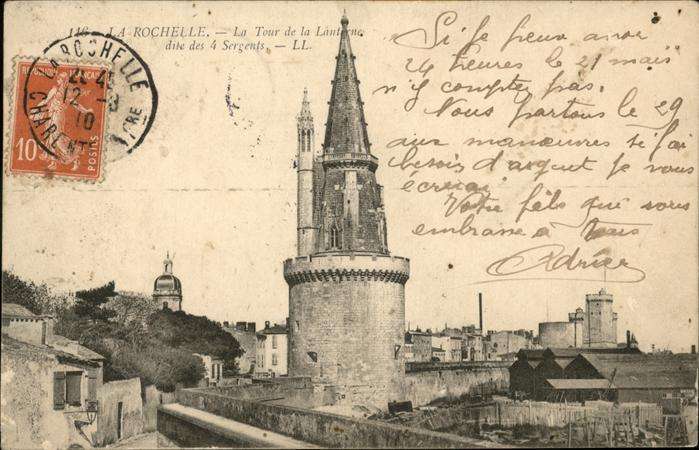 116 LA ROCHELLE. — La Tour de la Lanterne
dite des 4 Sergents. — LL.
LA ROCHELLE
12 -3
10
CHARENTE INFRE
REPUBLIQUE FRANÇAISE
10
POSTES
Si je peux avoir
24 heures le 21 mais
n'y comptez pas.
Nous partons le 29
aux manœuvres si j'ai
besoin d'argent je vous
écrirai
Votre fils qui vous
embrasse à tous
Adrien